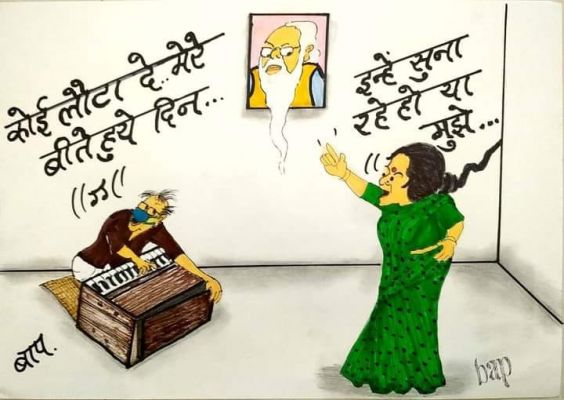 कोई लौटा दे.. मेरे
बीते हुये दिन...
इन्हें सुना
रहे हो या
मुझे...
बाप.
bap